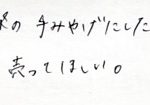 の手みやげにした
売ってほしい。